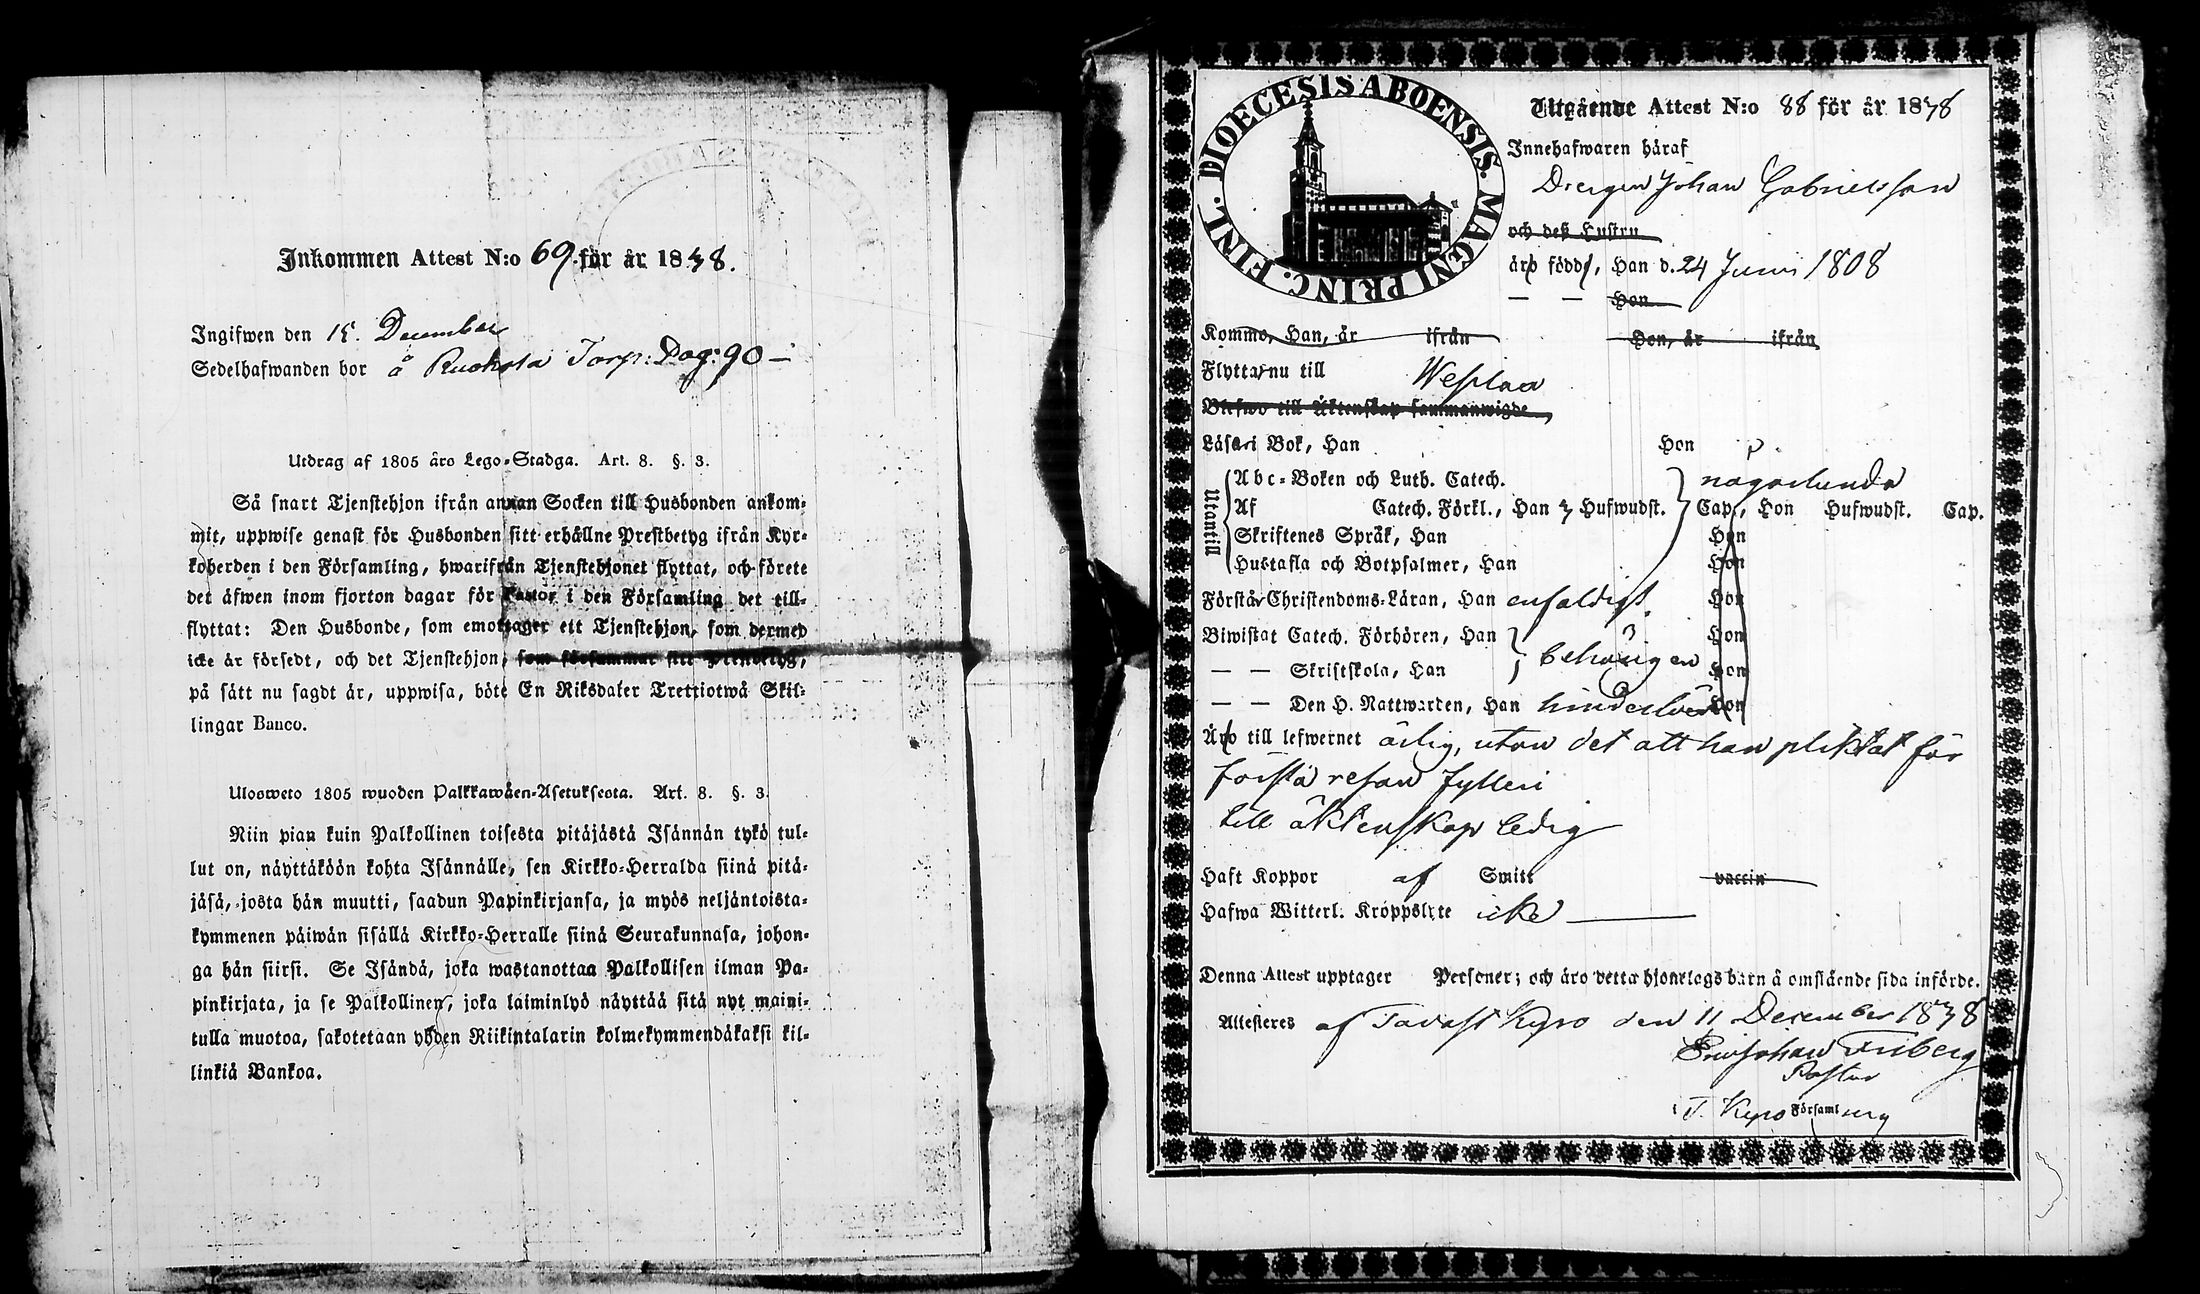 Inkommen Attest N:o 69 för år 1838.
Ingifwen den 15. December
Sedelhafwanden bor å Ruokola Torp: Pag: 90 —
Utdrag af 1805 års Lego-Stadga. Art. 8. §. 3.
Så snart Tjenstehjon ifrån annan Socken till Husbonden ankom-
mit, uppwise genast för Husbonden sitt erhållne Prestbetyg ifrån Kyr-
koherden i den Församling, hwarifrån Tjenstehjonet flyttat, och förete
det äfwen inom fjorton dagar för Pastor i den Församling det till-
flyttat: Den Husbonde, som emottager ett Tjenstehjon, som dermed
icke är försedt, och det Tjenstehjon, som försummar sitt Prestbetyg,
på sätt nu sagdt är, uppwisa, böte En Riksdaler Trettiotwå Skil-
lingar Banco.
Ulosweto 1805 wuoden Palkkawäen-Asetuksesta. Art. 8. §. 3.
Niin pian kuin Palkollinen toisesta pitäjästä Isännän tykö tul-
lut on, näyttäköön kohta Isännälle, sen Kirkko-Herralda siinä pitä-
jäsä, josta hän muutti, saadun Papinkirjansa, ja myös neljäntoista-
kymmenen päiwän sisällä Kirkko-Herralle siinä Seurakunnasa, johon-
ga hän siirsi. Se Isändä, joka wastanottaa Palkollisen ilman Pa-
pinkirjata, ja se Palkollinen, joka laiminlyö näyttää sitä nyt maini-
tulla muotoa, sakotetaan yhden Riikintalarin kolmekymmendäkaksi kil-
linkiä Bankoa.
DIOECESIS ABOENSIS. MAGNI PRINC. FINL.
Utgående Attest N:o 88 för år 1838
Innehafwaren häraf
Drengen Johan Gabrielsson
och deß Hustru
äro födde, Han d. 24 Juni 1808
— — Hon
Kommo, Han, år ifrån Hon, år ifrån
Flytta nu till Wesilax
Blefwo till Äktenskap sammanwigde
Läsa i Bok, Han Hon
Utantill
Abc-Boken och Luth. Catech. någorlunda
Af Catech. Förkl., Han Hufwudst. Cap., Hon Hufwudst. Cap.
Skriftenes Språk, Han Hon
Hustafla och Botpsalmer, Han Hon
Förstår Christendoms-Läran, Han enfaldigt. Hon
Biwistat Catech. Förhören, Han Hon
— — Skriftskola, Han behörigen Hon
— — Den H. Nattwarden, Han hinderlös Hon
Äro till lefwernet ärlig, utan det att han pliktat för
första resan fylleri
till äktenskap ledig
Haft Koppor af Smitt vaccin
Hafwa Witterl. Kroppslyte icke
Denna Attest upptager Personer; och äro detta hjonelags barn å omstående sida införde.
Attesteres af Tavast Kyro den 11 December 1838
Eric Johan Friberg
Pastor
i T. Kyro Församling